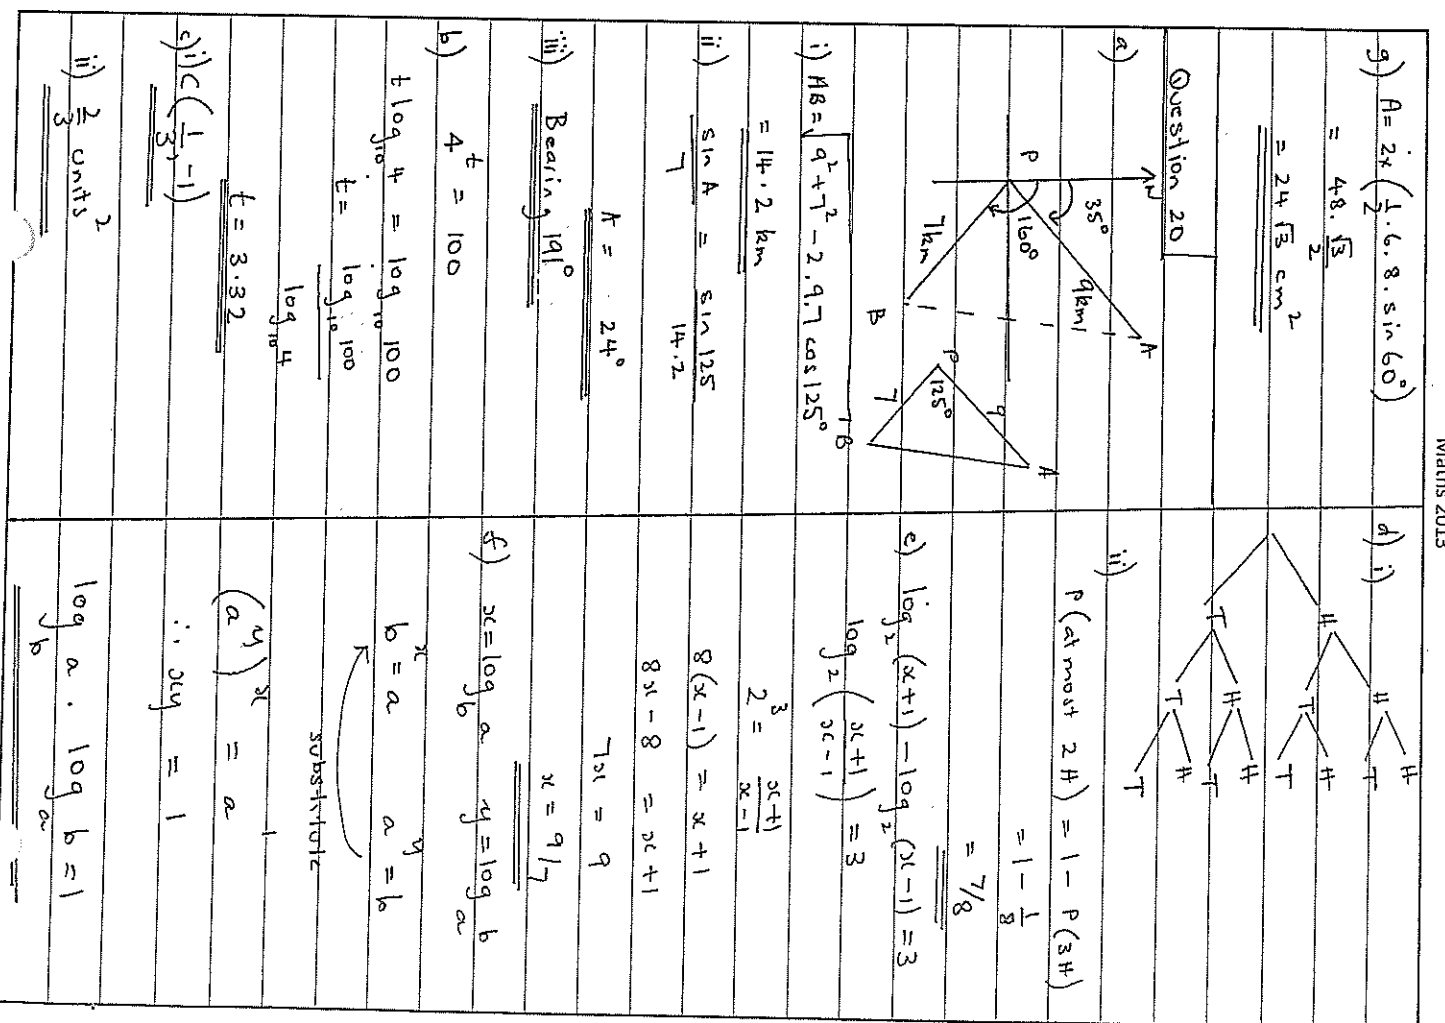 Maths 2013
g) A = 2 × (1/2 . 6 . 8 . sin 60°)
= 48 . √3/2
= 24 √3 cm²
Question 20
a)
N
35°
160°
P
9km
A
7km
B
P
125°
9
A
7
B
i) AB = √(9² + 7² - 2.9.7 cos 125°)
= 14.2 km
ii) sin A / 7 = sin 125 / 14.2
A = 24°
iii) Bearing 191°
b) 4^t = 100
t log₁₀ 4 = log₁₀ 100
t = log₁₀ 100 / log₁₀ 4
t = 3.32
c) i) C (1/3, -1)
ii) 2/3 units²
d) i)
H
H
H
T
T
H
T
T
H
H
T
T
H
T
ii) P(at most 2H) = 1 - P(3H)
= 1 - 1/8
= 7/8
e) log₂ (x+1) - log₂ (x-1) = 3
log₂ ((x+1)/(x-1)) = 3
2³ = (x+1)/(x-1)
8(x-1) = x+1
8x - 8 = x+1
7x = 9
x = 9/7
f) x = log_b a y = log_a b
b^x = a a^y = b
substitute
(a^y)^x = a¹
∴ xy = 1
log_b a . log_a b = 1